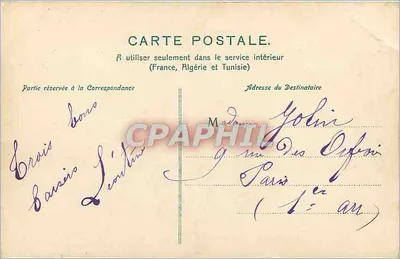 CARTE POSTALE.
A utiliser seulement dans le service intérieur
(France, Algérie et Tunisie)
Partie réservée à la Correspondance
Adresse du Destinataire
Trois bons
baisers
Léontine
Madame Jolin
9 rue des Orfèvres
Paris
(1er arr)
CPAPHIL